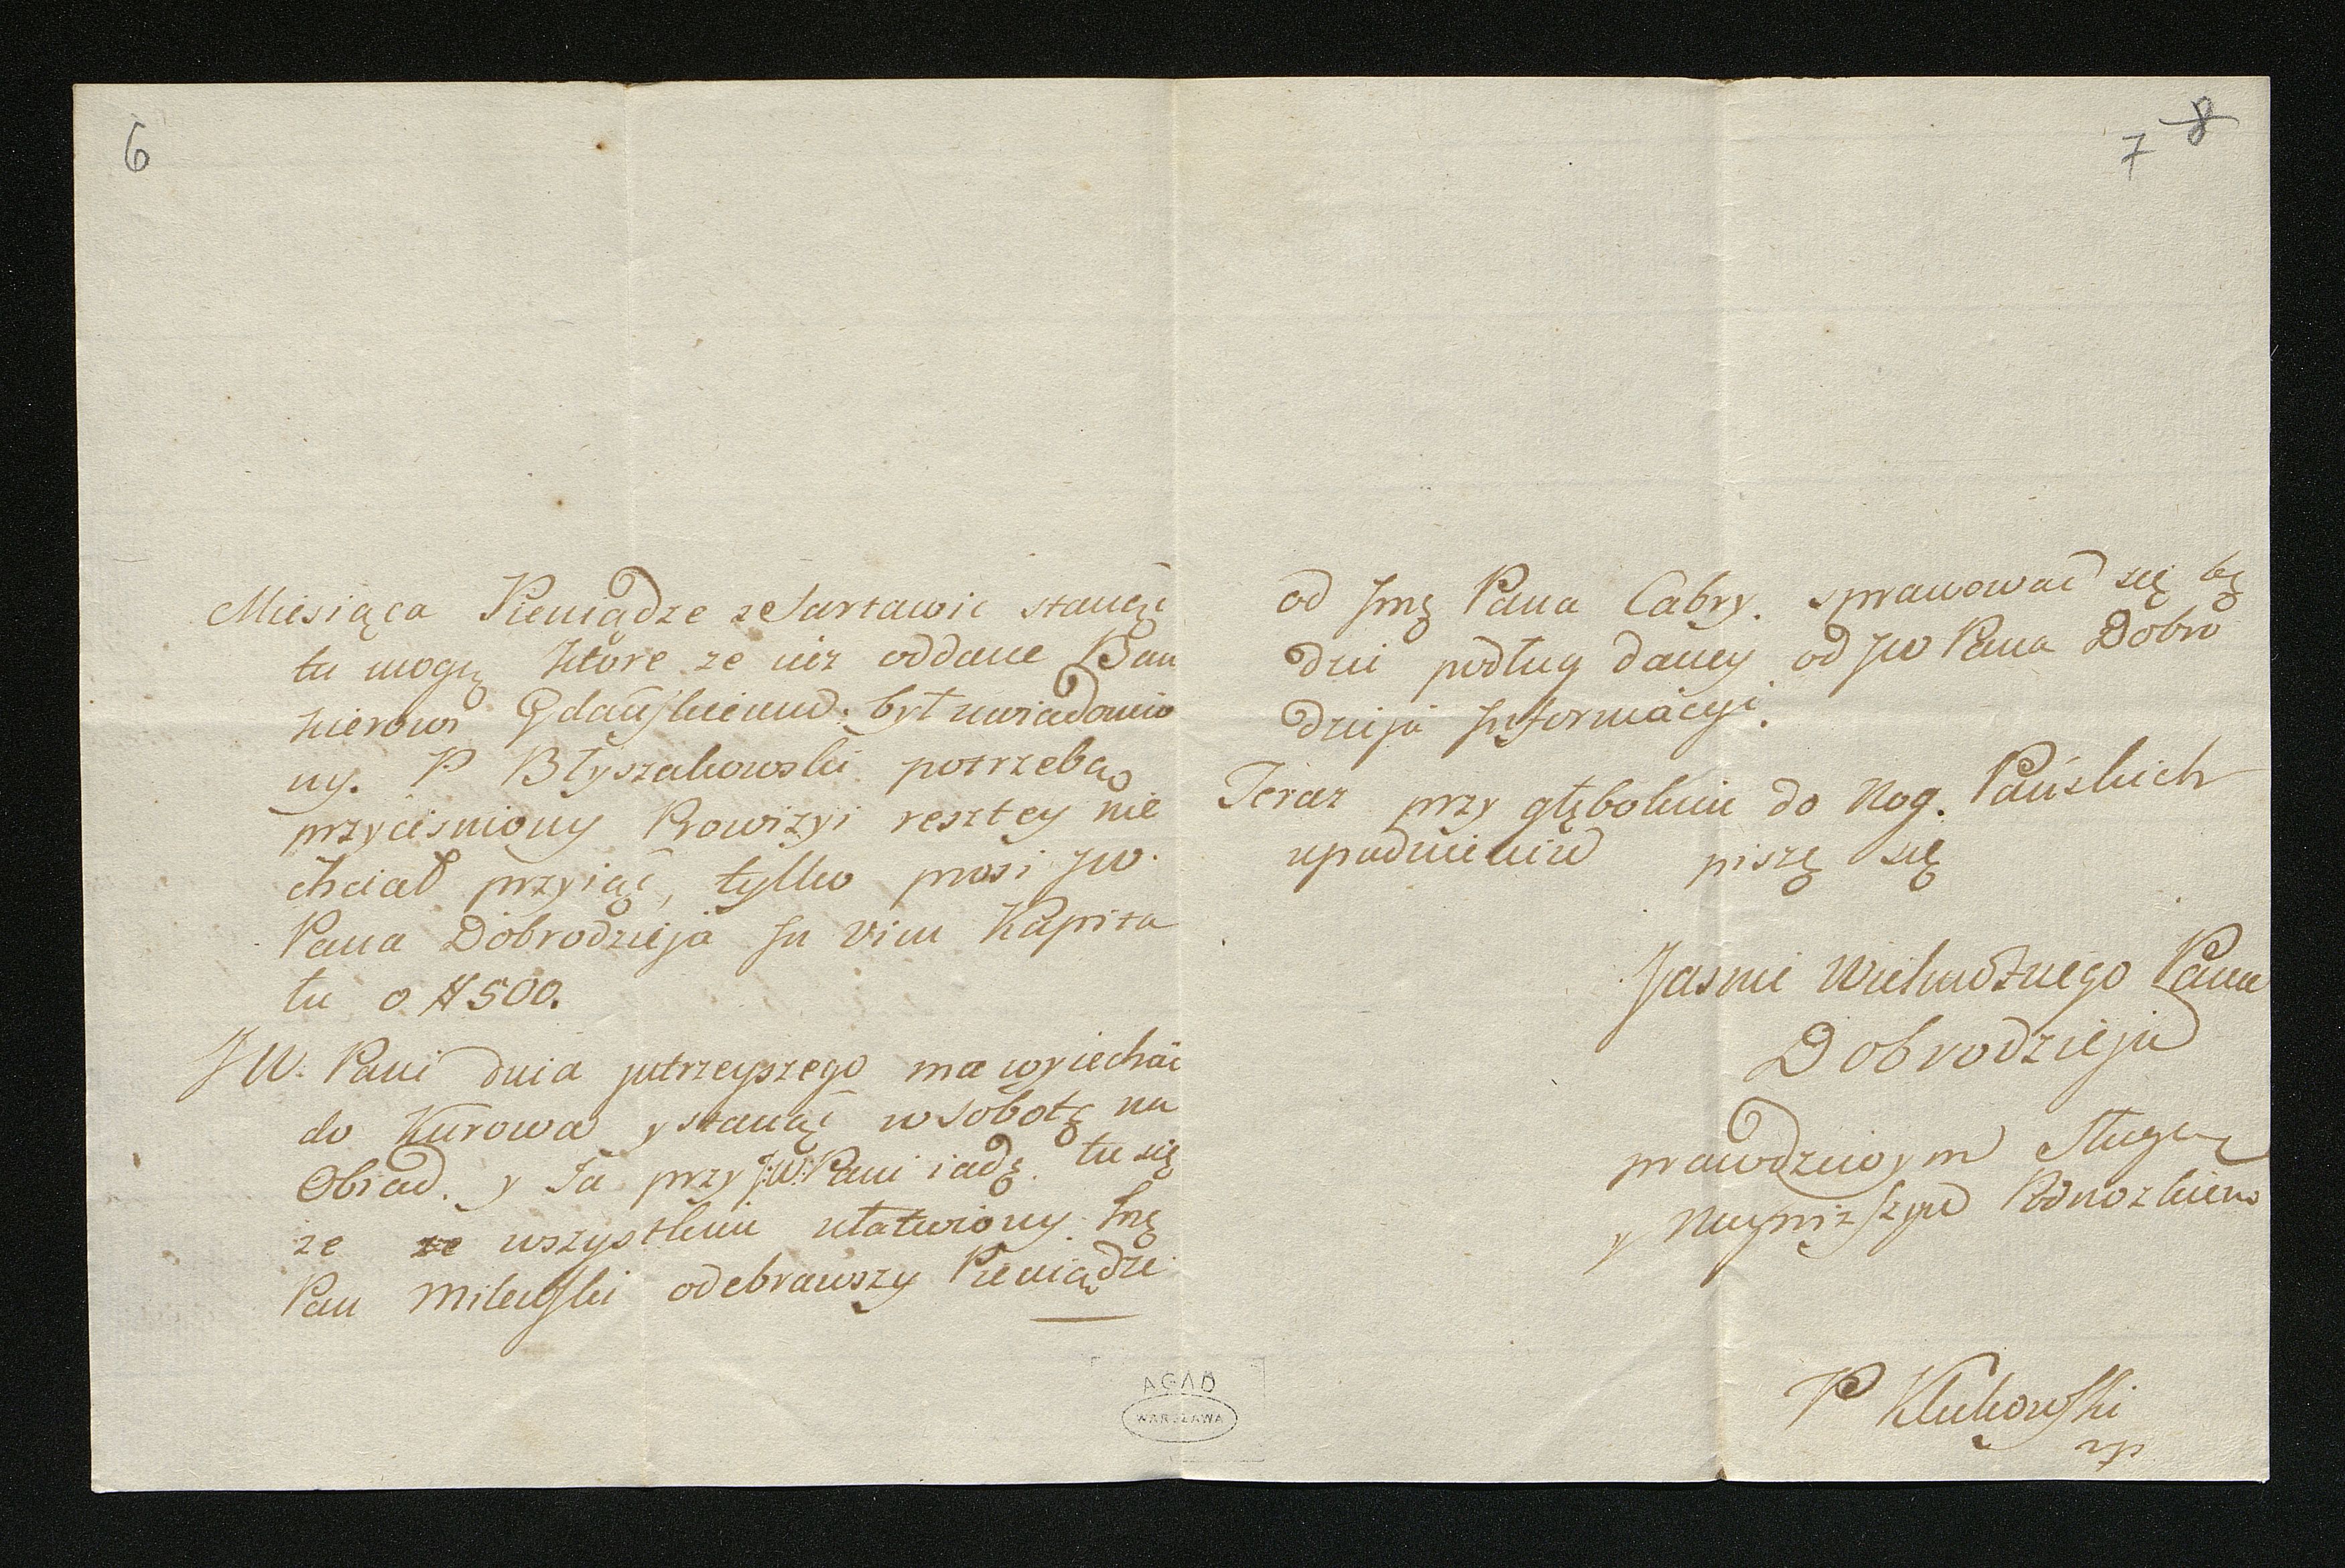 6
Miesiąca Pieniądze z Sartawic stanąć
tu mogą które ze iuż oddane Ban
kierowi Gdańskiemu; był uwiadomio
ny. P Błyszakowski potrzebą
przyciśniony Prowizyi resztey nie
chciał przyiąć, tylko prosi JW.
Pana Dobrodzieja In vim Kapita
łu o # 500.
JW. Pani dnia jutrzeyszego ma wyiechać
do Kurowa y stanąć w Sobotę na
Obiad. y Ja przy J:W: Pani iadę. tu się
ze ze wszystkim ułatwiony. Imę
Pan Milewski odebrawszy Pieniądze
7 8
od Jmę Pana Cabry. sprawować się bę
dzi podług daney od JW Pana Dobro
dzieja Informacyi.
Teraz przy głębokim do Nog. Pańskich
upadnieniu piszę się
Jasnie Wielmożnego Pana
Dobrodzieja
prawdziwym Sługą
y Nayniższym Podnożkiem
P Klukowski
mp
AGAD
WARSZAWA